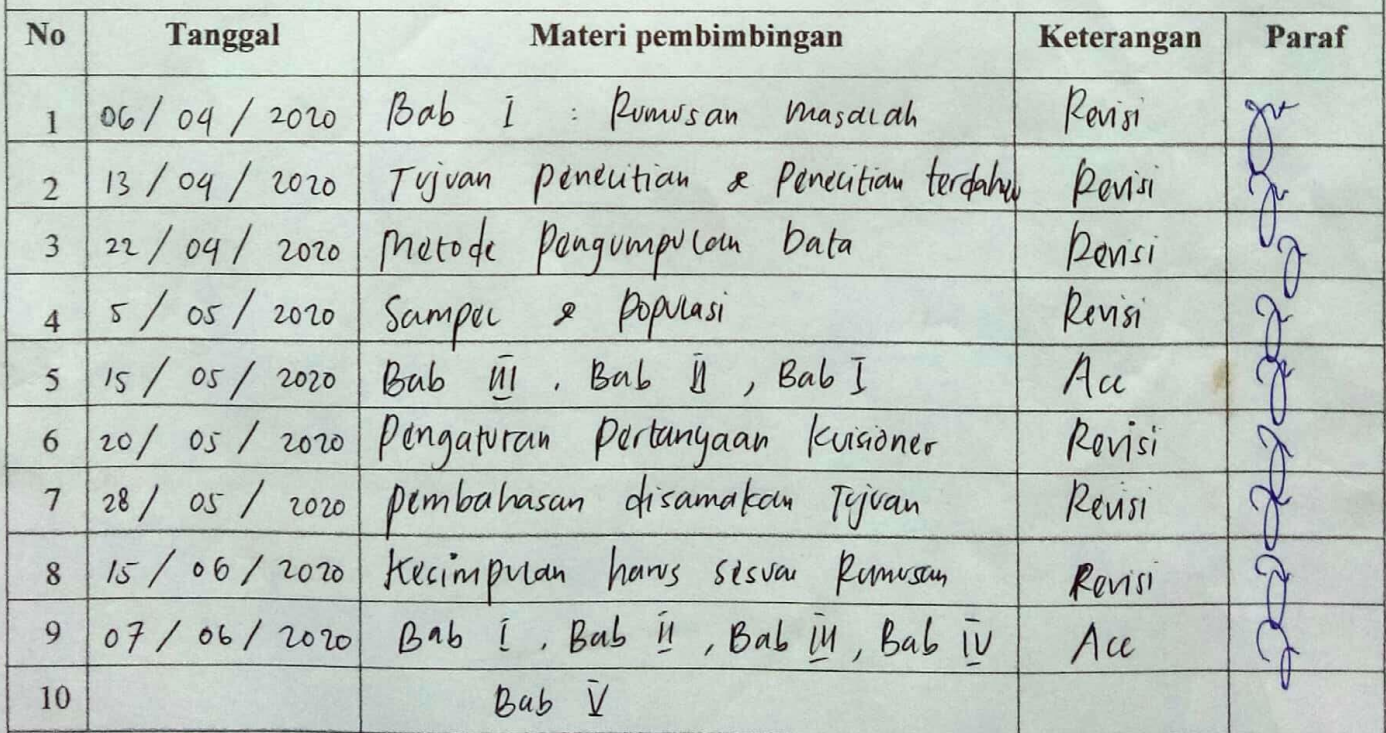 No Tanggal Materi pembimbingan Keterangan Paraf
1 06/04/2020 Bab I : Rumusan masalah Revisi
2 13/04/2020 Tujuan penelitian & Penelitian terdahulu Revisi
3 22/04/2020 Metode Pengumpulan Data Revisi
4 5/05/2020 Sampel & Populasi Revisi
5 15/05/2020 Bab III, Bab II, Bab I Acc
6 20/05/2020 Pengaturan Pertanyaan Kuisioner Revisi
7 28/05/2020 Pembahasan disamakan Tujuan Revisi
8 15/06/2020 Kecimpulan harus sesuai Rumusan Revisi
9 07/06/2020 Bab I, Bab II, Bab III, Bab IV Acc
10 Bab V